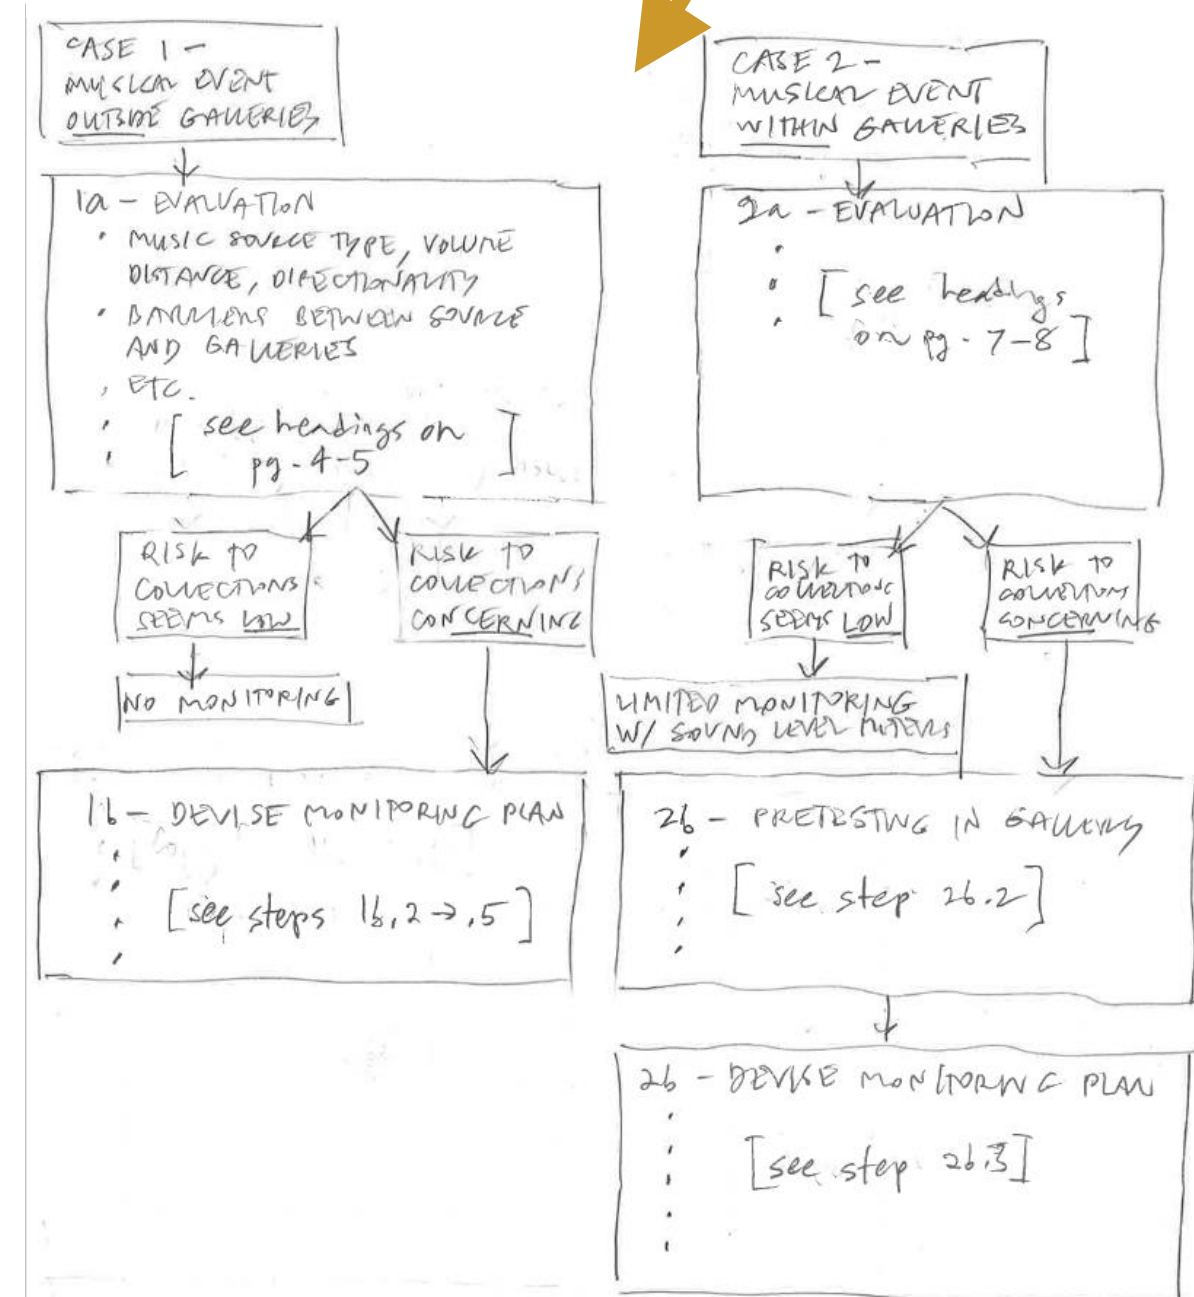 CASE 1 -
MUSICAL EVENT
OUTSIDE GALLERIES
1a - EVALUATION
• MUSIC SOURCE TYPE, VOLUME
DISTANCE, DIRECTIONALITY
• BARRIERS BETWEEN SOURCE
AND GALLERIES
• ETC.
[see headings on
pg. 4-5]
RISK TO
COLLECTIONS
SEEMS LOW
RISK TO
COLLECTIONS
CONCERNING
NO MONITORING
1b - DEVISE MONITORING PLAN
[see steps 1b.2 → .5]
CASE 2 -
MUSICAL EVENT
WITHIN GALLERIES
2a - EVALUATION
[see headings
on pg. 7-8]
RISK TO
COLLECTIONS
SEEMS LOW
RISK TO
COLLECTIONS
CONCERNING
LIMITED MONITORING
W/ SOUND LEVEL METERS
2b - PRETESTING IN GALLERY
[see step 2b.2]
2b - DEVISE MONITORING PLAN
[see step 2b.3]